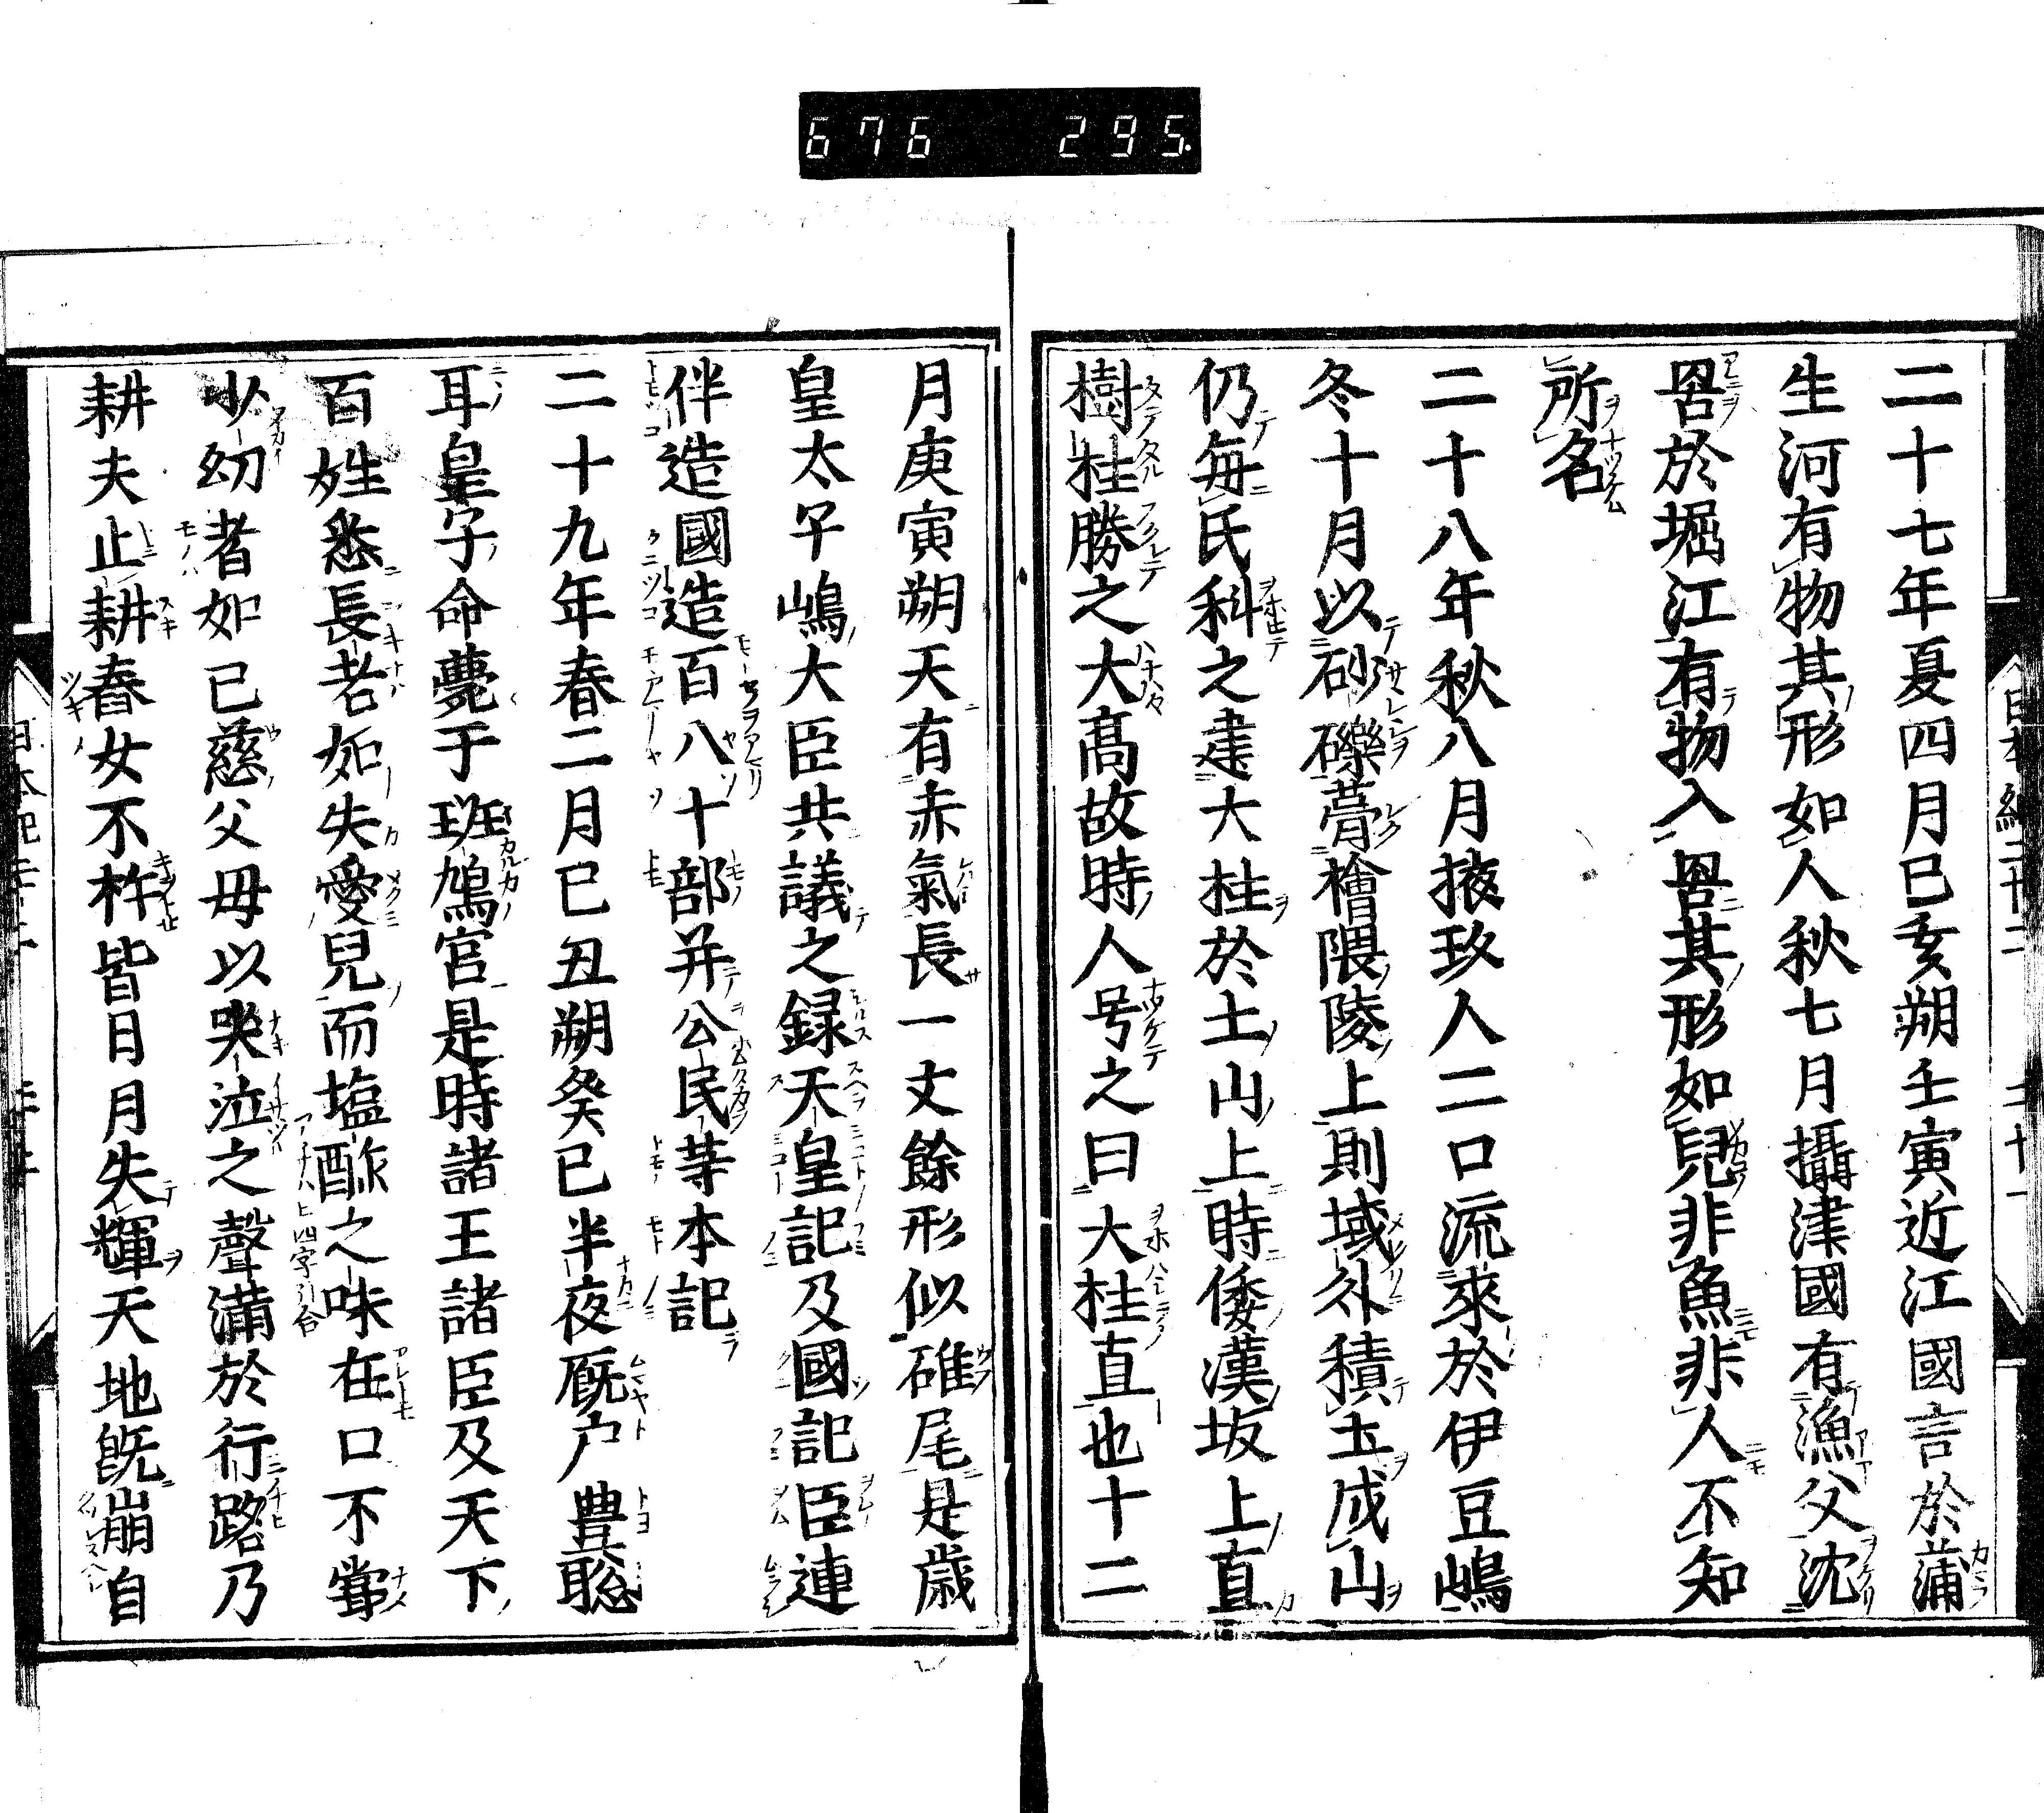 676 295.
二十七年夏四月己亥朔壬寅近江國言於蒲
生河有物其形如人秋七月攝津國有漁父沈
罟於堀江有物入罟其形如兒非魚非人不知
所名
二十八年秋八月掖玖人二口流來於伊豆嶋
冬十月以砂礫葺檜隈陵上則域外積土成山
仍每氏科之建大柱於土山上時倭漢坂上直
樹柱勝之大高故時人号之曰大柱直也十二
月庚寅朔天有赤氣長一丈餘形似雉尾是歲
皇太子嶋大臣共議之録天皇記及國記臣連
伴造國造百八十部并公民等本記
二十九年春二月己丑朔癸巳半夜厩戸豊聡
耳皇子命薨于斑鳩宮是時諸王諸臣及天下
百姓悉長老如失愛兒而塩酢之味在口不甞
少幼者如已慈父母以哭泣之聲滿於行路乃
耕夫止耕舂女不杵皆日月失輝天地既崩自